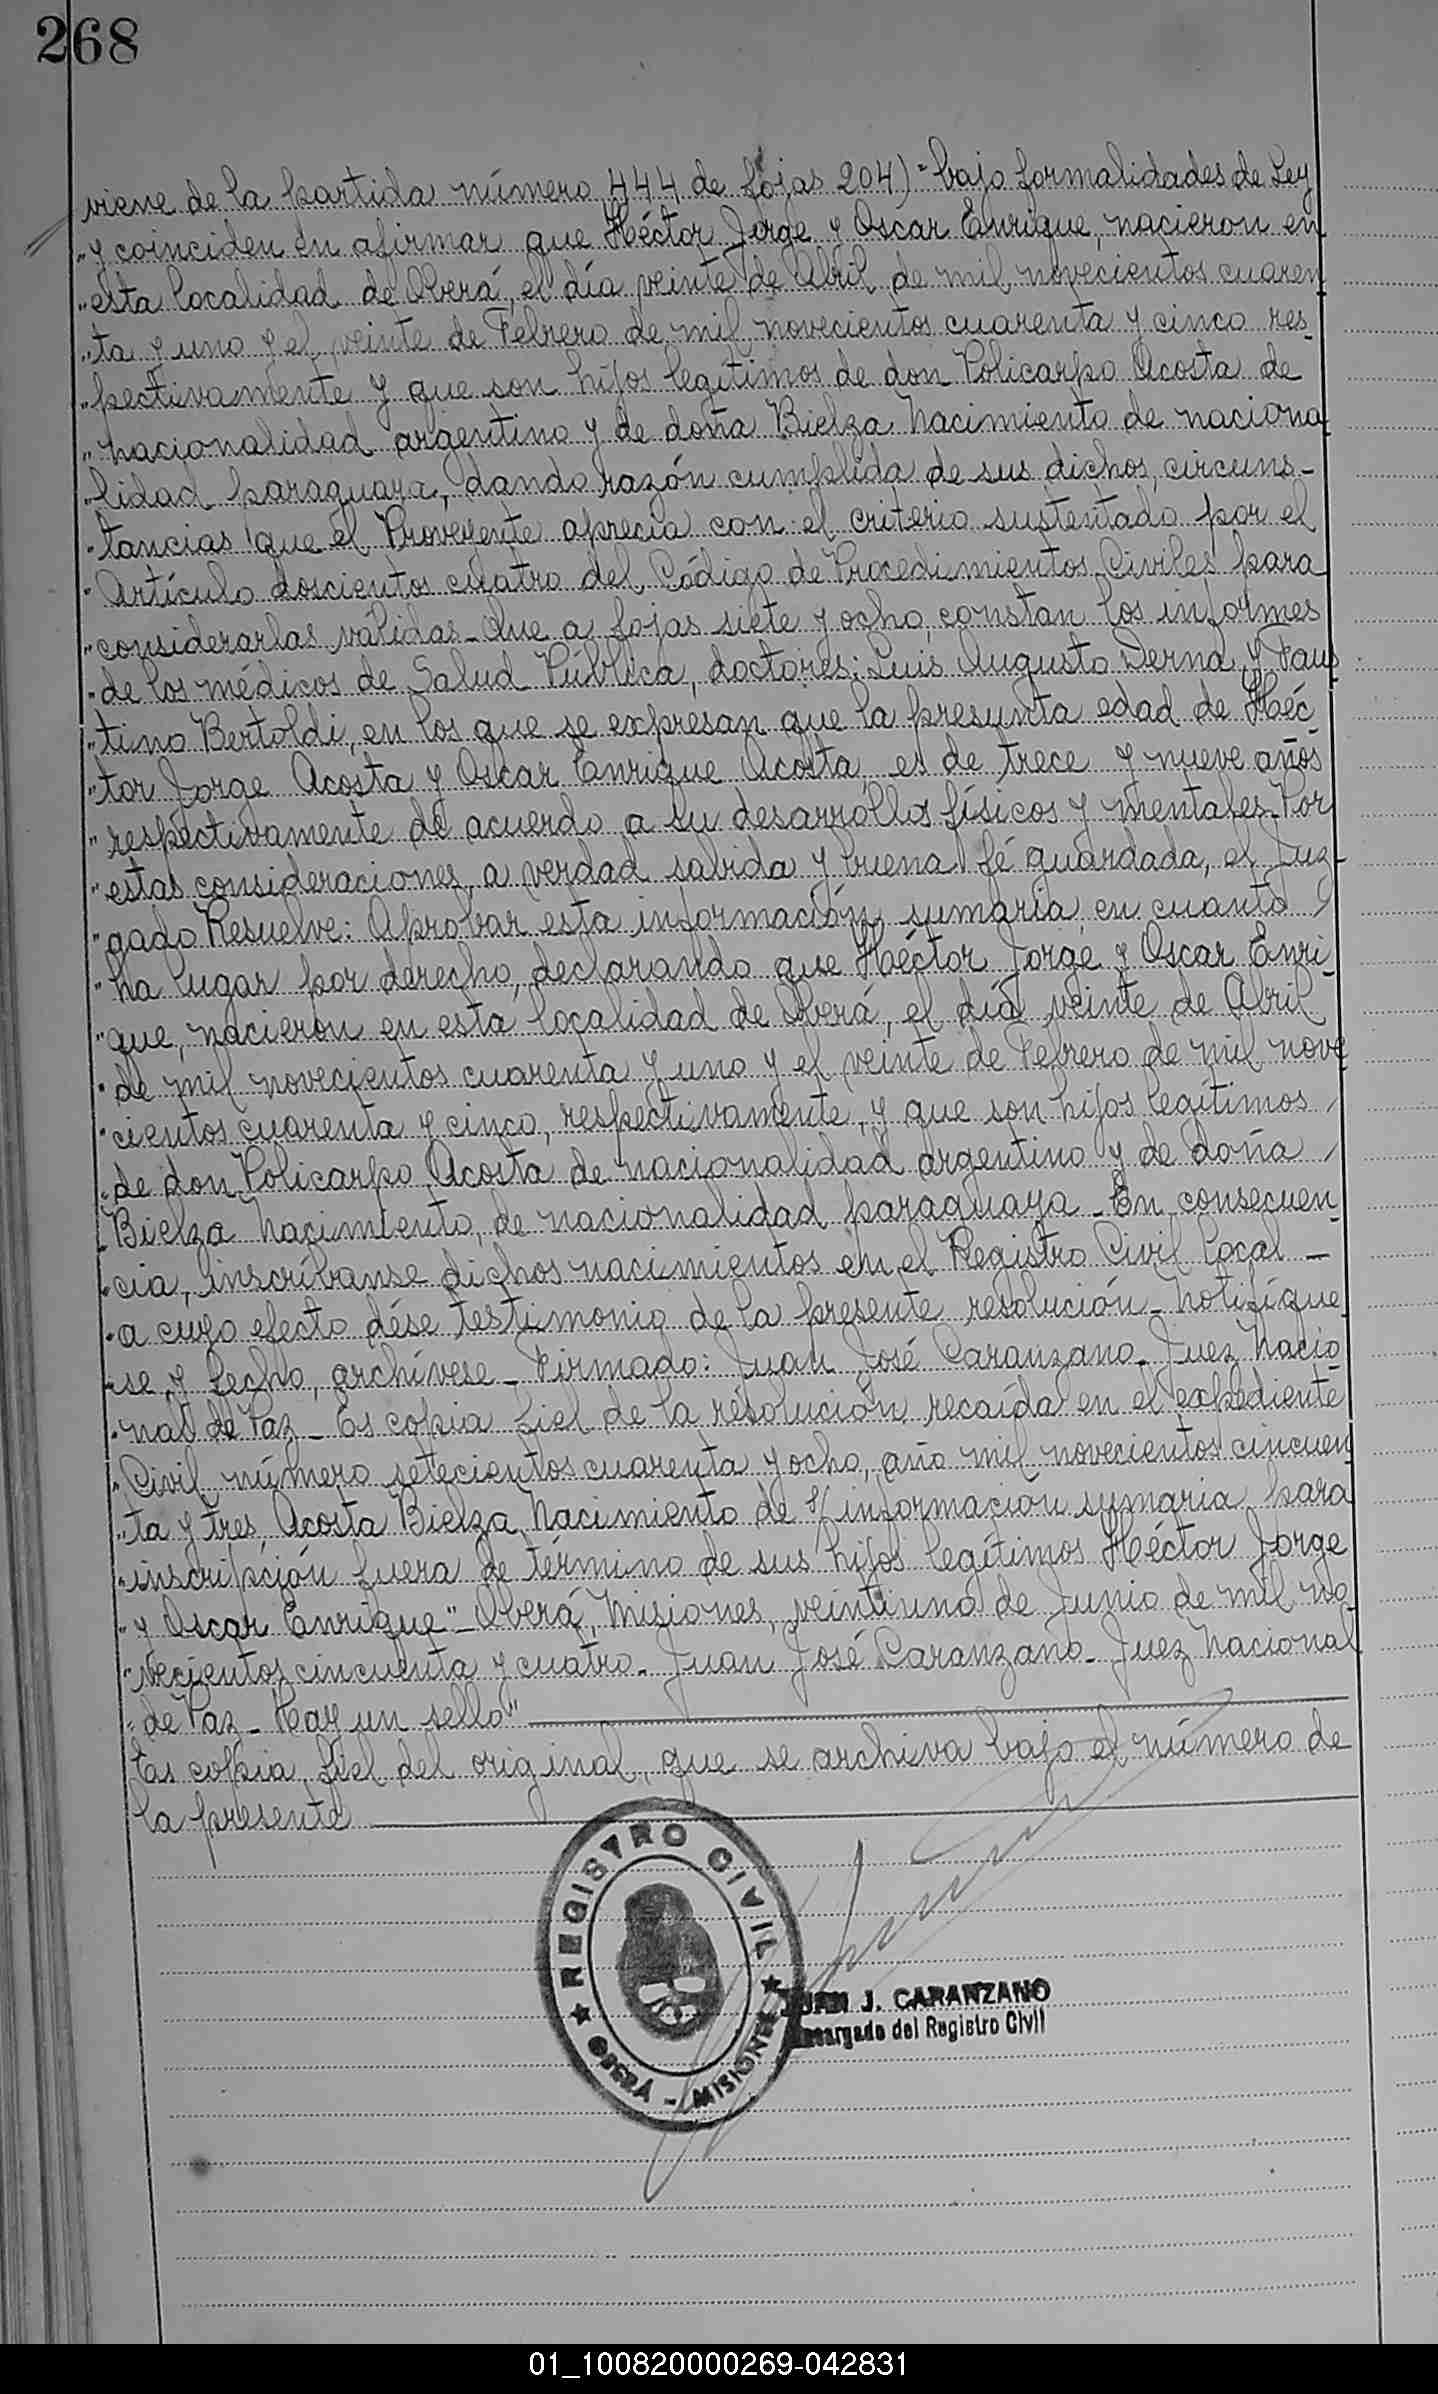 268
viene de la partida número 444 de fojas 204)="bajo formalidades de Ley
"y coinciden en afirmar que Héctor Jorge y Oscar Enrique, nacieron en
"esta localidad de Oberá, el día veinte de Abril de mil novecientos cuaren
"ta y uno y el veinte de Febrero de mil novecientos cuarenta y cinco res-
"pectivamente y que son hijos legítimos de don Policarpo Acosta de
"nacionalidad argentino y de doña Bielza Nacimiento de naciona
"lidad paraguaya, dando razón cumplida de sus dichos, circuns-
"tancias que el Proveyente aprecia con el criterio sustentado por el
"Artículo doscientos cuatro del Código de Procedimientos Civiles para
"considerarlas válidas_Que a fojas siete y ocho, constan los informes
"de los médicos de Salud Pública, doctores: Luis Augusto Derna y Faus
"tino Bertoldi, en los que se expresan que la presunta edad de Héc-
"tor Jorge Acosta y Oscar Enrique Acosta es de trece y nueve años
"respectivamente de acuerdo a su desarróllos físicos y mentales_Por
"estas consideraciones, a verdad sabida y buena fé guardada, el Juz-
"gado Resuelve: Aprobar esta información sumaria en cuanto /
"ha lugar por derecho, declarando que Héctor Jorge y Oscar Enri-
"que, nacieron en esta localidad de Oberá, el día veinte de Abril
"de mil novecientos cuarenta y uno y el veinte de Febrero de mil nove
"cientos cuarenta y cinco, respectivamente, y que son hijos legítimos /
"de don Policarpo Acosta de nacionalidad argentino y de doña /
"Bielza Nacimiento, de nacionalidad paraguaya_En consecuen-
"cia, inscríbanse dichos nacimientos en el Registro Civil local _
"a cuyo efecto dése testimonio de la presente resolución_Notifíque
"se y hecho, archívese_Firmado: Juan José Caranzano_Juez Nacio-
"nal de Paz_Es copia fiel de la resolución recaída en el expediente
"Civil número setecientos cuarenta y ocho, año mil novecientos cincuen
"ta y tres, Acosta Bielza Nacimiento de s/ información sumaria para
"inscripción fuera de término de sus hijos legítimos Héctor Jorge
"y Oscar Enrique"_Oberá, Misiones, veintiuno de Junio de mil no-
"vecientos cincuenta y cuatro_Juan José Caranzano_Juez Nacional
"de Paz_Hay un sello"
Es copia fiel del original, que se archiva bajo el número de
la presente
REGISTRO CIVIL
OBERÁ - MISIONES
JUAN J. CARANZANO
Encargado del Registro Civil
01_100820000269-042831